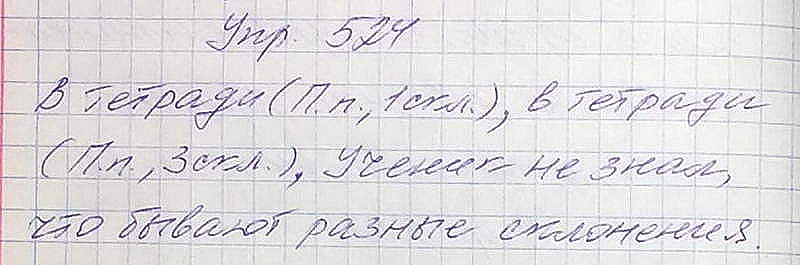 Упр. 524
В тетради (П.п., 1скл.), в тетради
(П.п., 3скл.), Ученик не знал,
что бывают разные склонения.